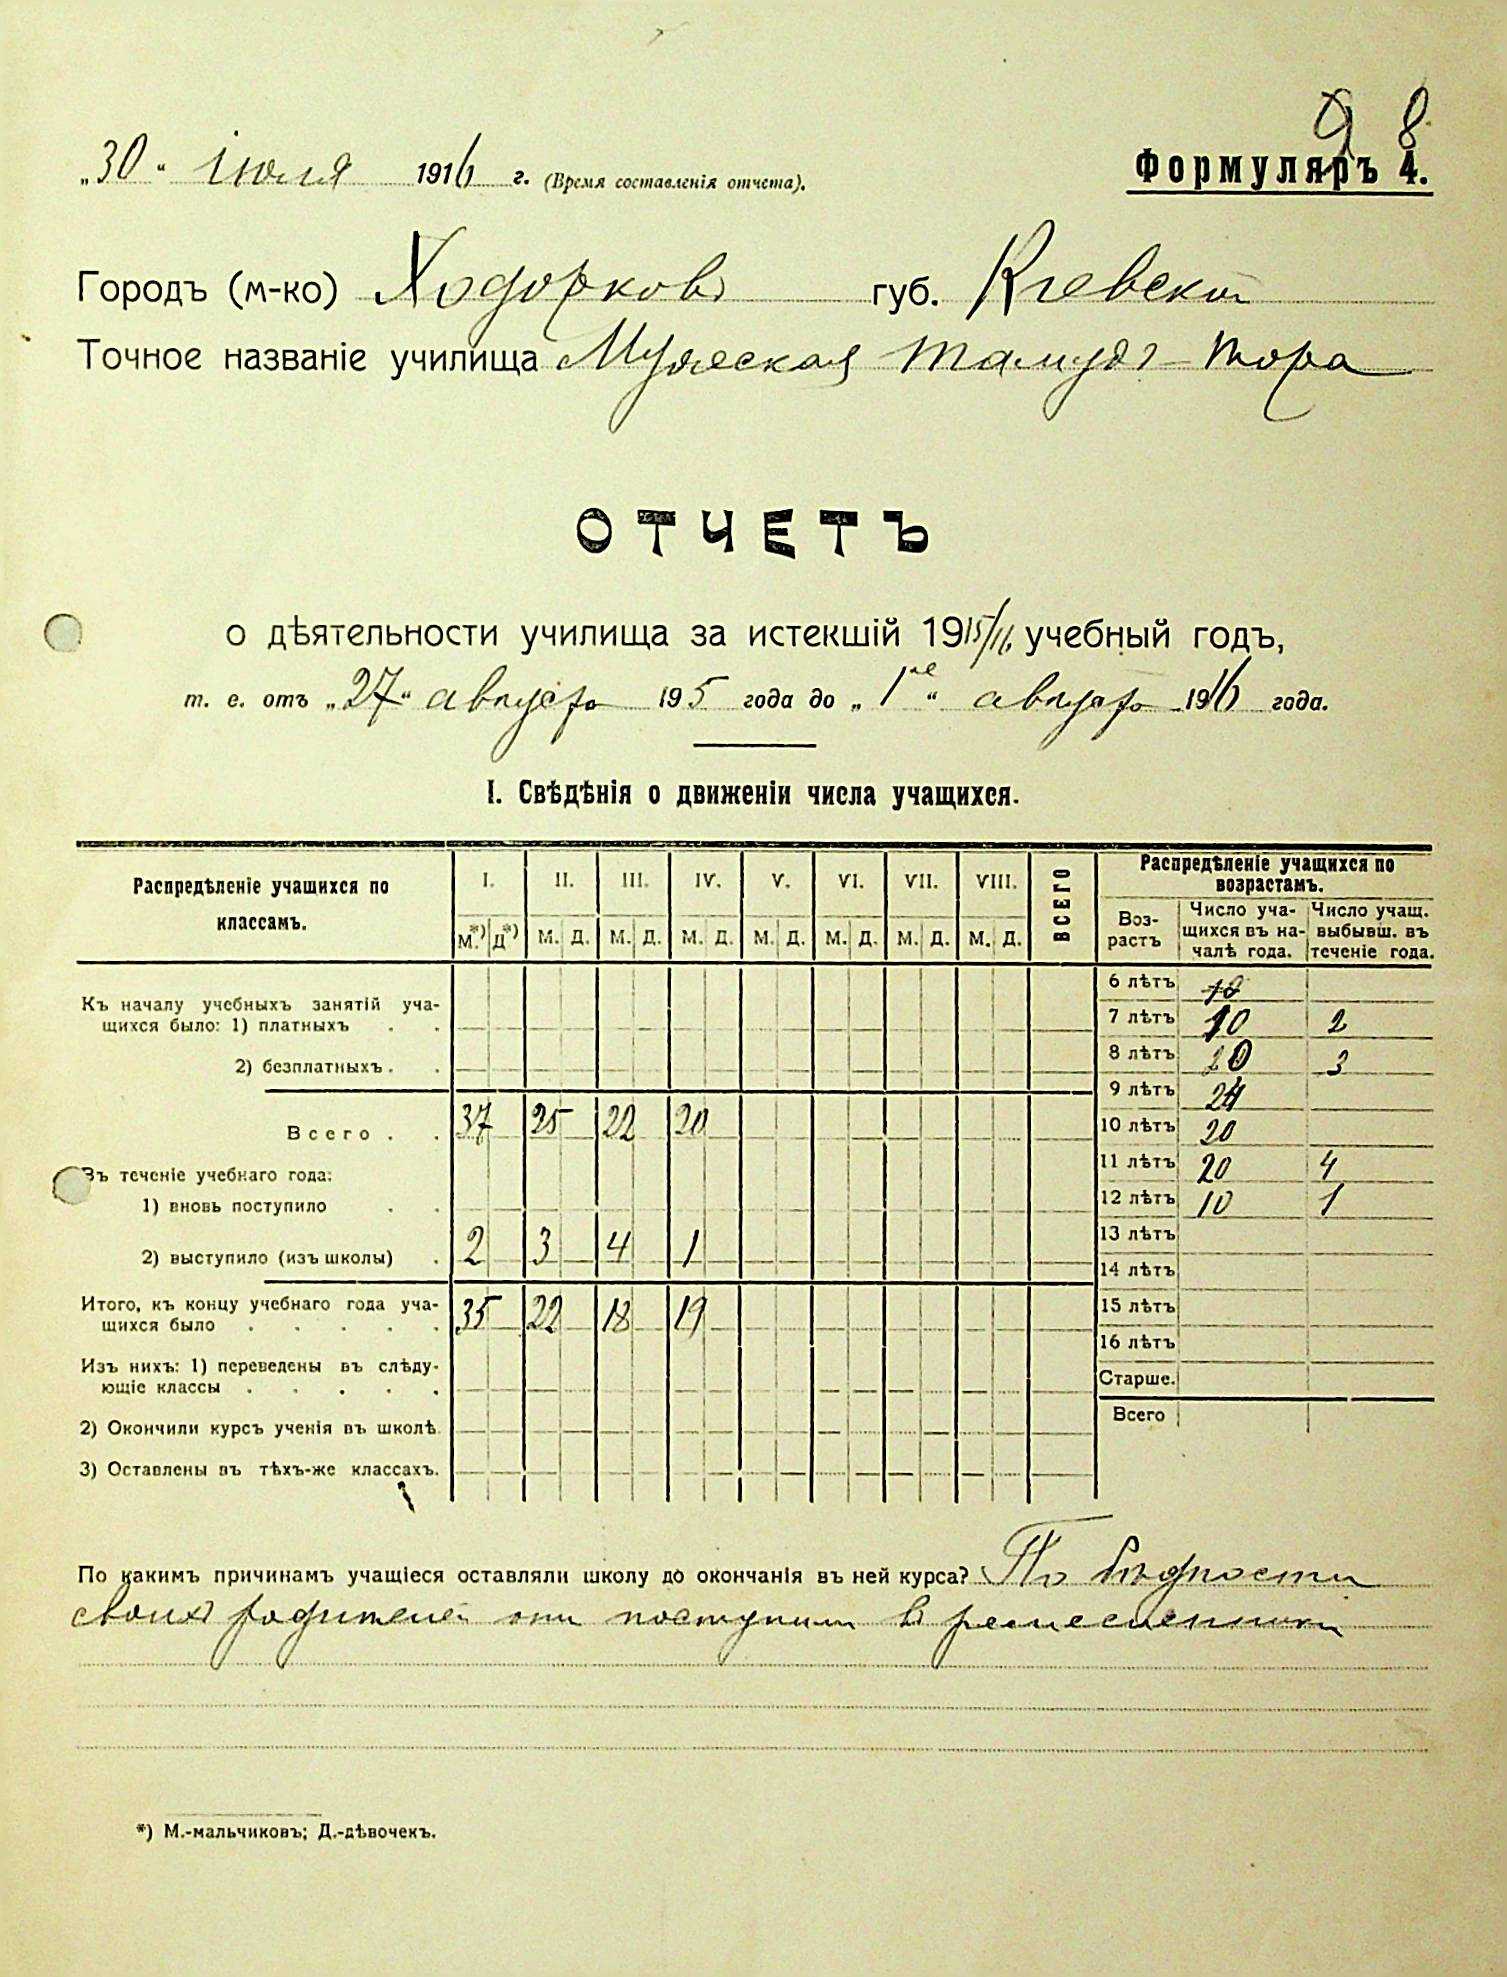 9 8
„30“ іюля 1916 г. (Время составленія отчета).
Формуляръ 4.
Городъ (м-ко) Ходорковъ губ. Кіевской
Точное названіе училища Мужеская талмудъ-тора
ОТЧЕТЪ
о дѣятельности училища за истекшій 1915/16 учебный годъ,
т. е. отъ „27“ августа 195 года до „1ое“ августа 1916 года.
I. Свѣдѣнія о движеніи числа учащихся.
Распредѣленіе учащихся по классамъ. I. II. III. IV. V. VI. VII. VIII. ВСЕГО
М.*) Д*) М. Д. М. Д. М. Д. М. Д. М. Д. М. Д. М. Д.
Къ началу учебныхъ занятій уча-
щихся было: 1) платныхъ . .
2) безплатныхъ . .
Всего . . 37 25 22 20
Въ теченіе учебнаго года:
1) вновь поступило . .
2) выступило (изъ школы) . 2 3 4 1
Итого, къ концу учебнаго года уча-
щихся было . . . . . 35 22 18 19
Изъ нихъ: 1) переведены въ слѣду-
ющіе классы . . . . .
2) Окончили курсъ ученія въ школѣ
3) Оставлены въ тѣхъ-же классахъ.
Распредѣленіе учащихся по
возрастамъ.
Воз-
растъ
Число уча-
щихся въ на-
чалѣ года.
Число учащ.
выбывш. въ
теченіе года.
6 лѣтъ 10
7 лѣтъ 10 2
8 лѣтъ 20 3
9 лѣтъ 24
10 лѣтъ 20
11 лѣтъ 20 4
12 лѣтъ 10 1
13 лѣтъ
14 лѣтъ
15 лѣтъ
16 лѣтъ
Старше.
Всего
По какимъ причинамъ учащіеся оставляли школу до окончанія въ ней курса? По бѣдности
своихъ родителей они поступили въ ремесленники
*) М.-мальчиковъ; Д.-дѣвочекъ.